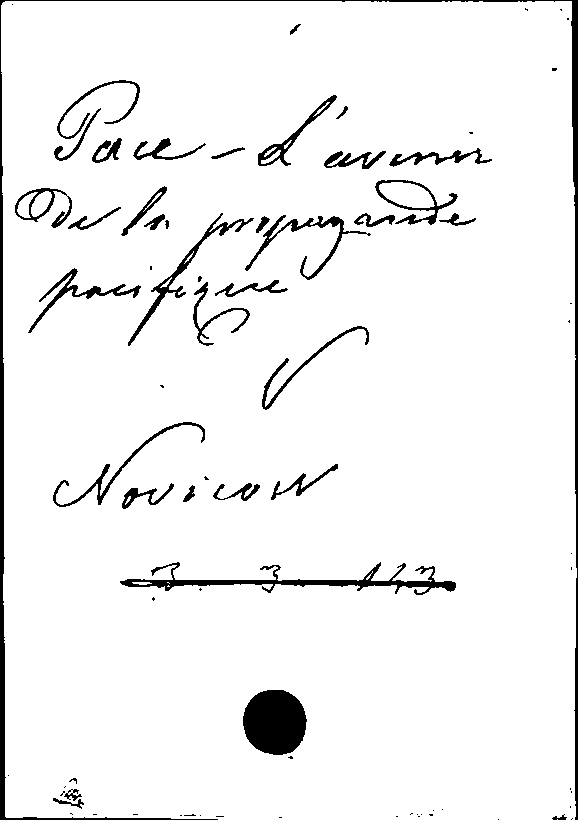 Pace – L'avenir
de la propagande
pacifique
V
Novicow
3 3 143